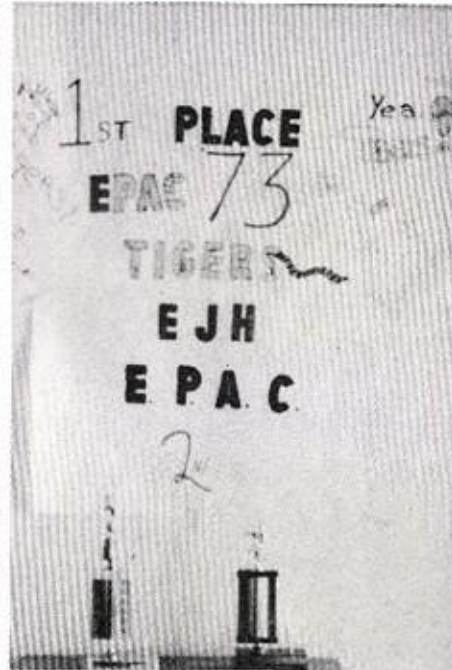 1ST PLACE Yea
EPAC 73
TIGERS
EJH
E.P.A.C.
2